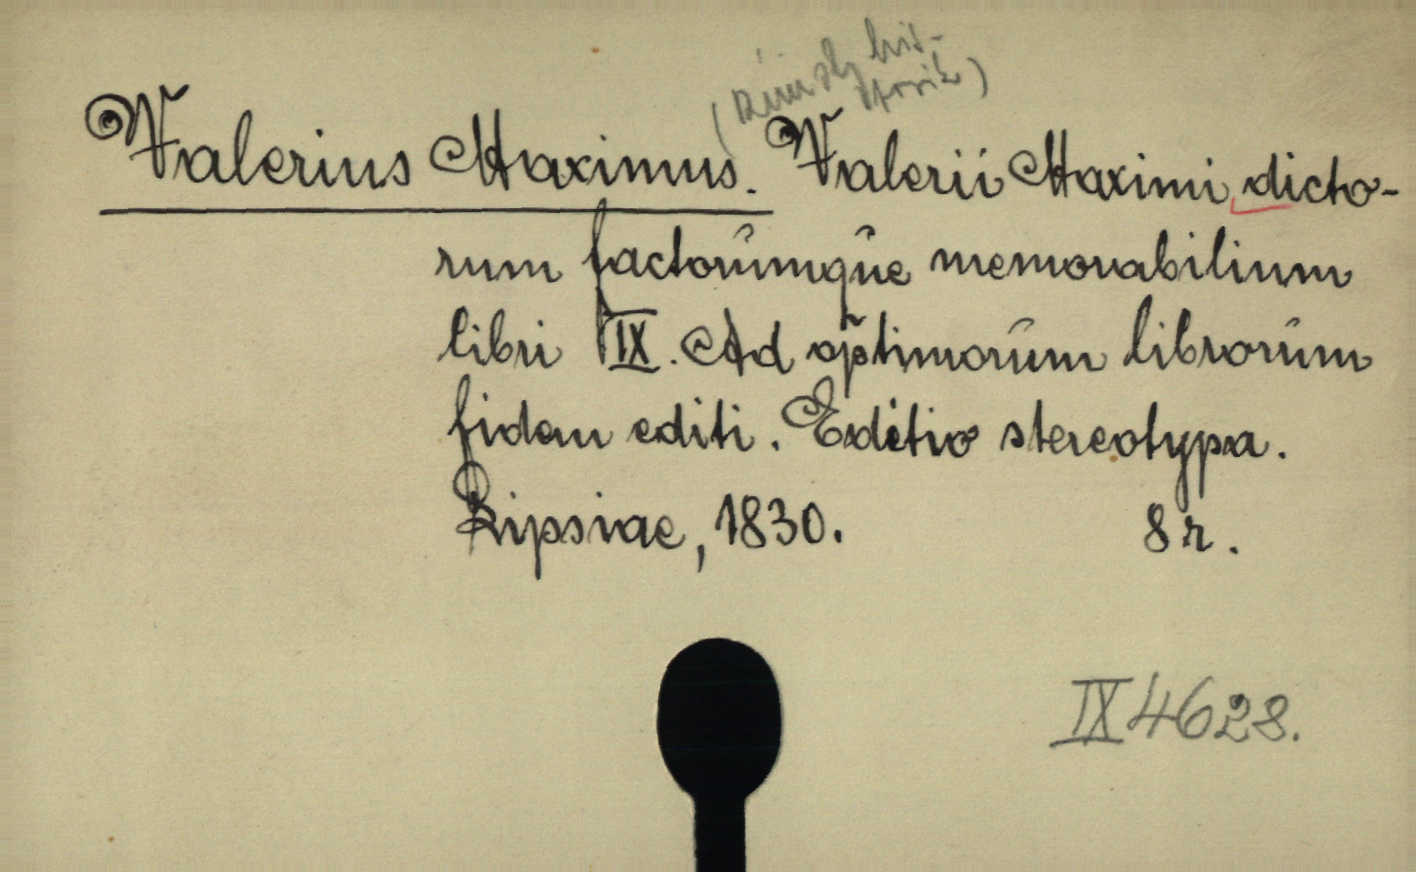 (Rímsky his-
torik)
Valerius Maximus. Valerii Maximi dicto-
rum factorumque memorabilium
libri IX. Ad optimorum librorum
fidem editi. Editio stereotypa.
Lipsiae, 1830. 8 r.
IX 4628.